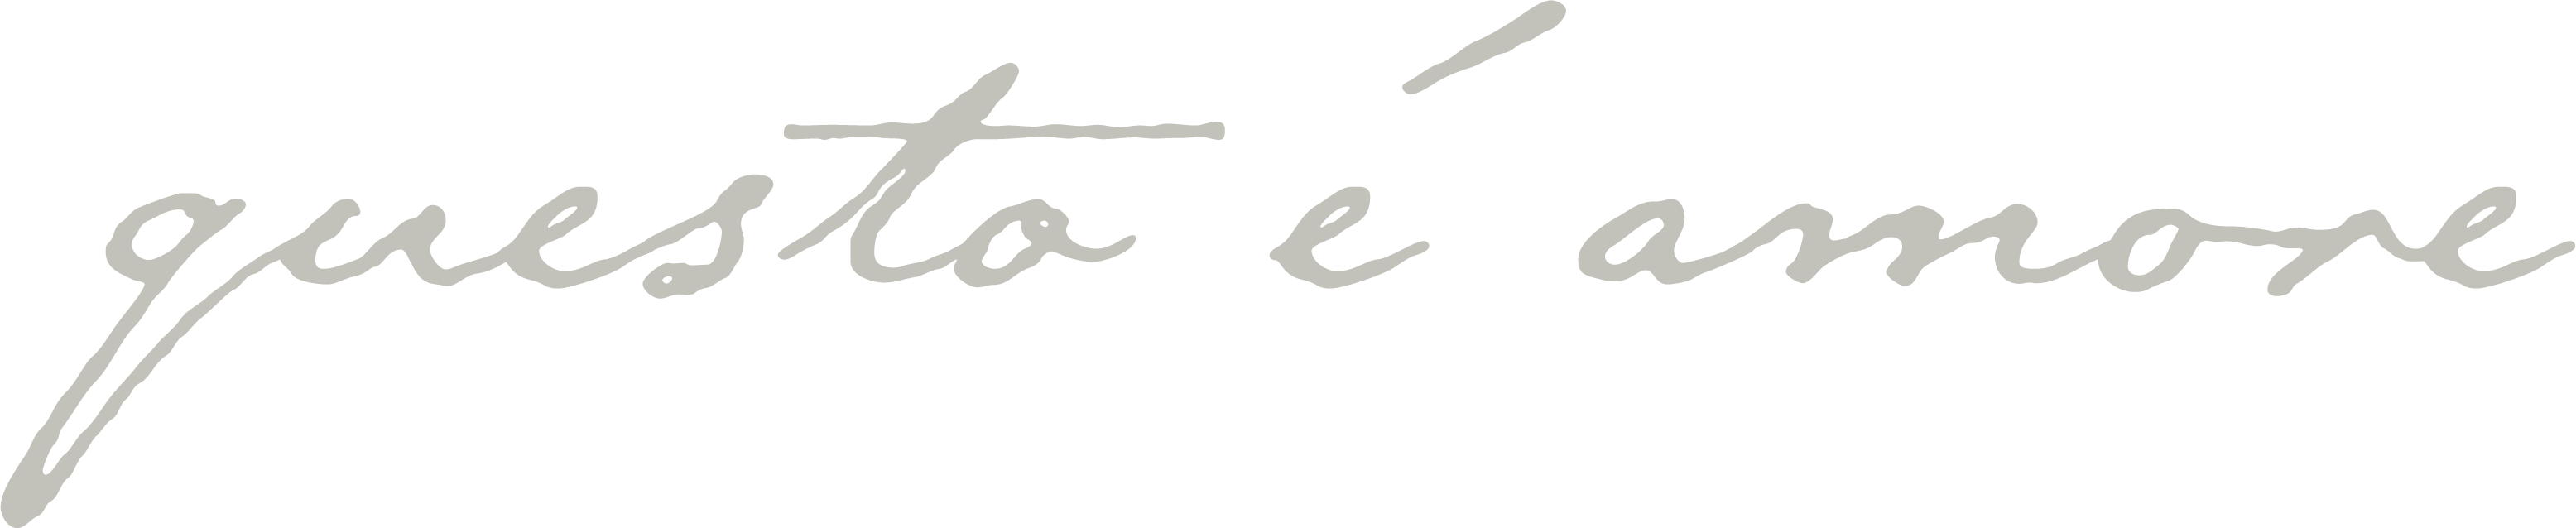 questo é amore